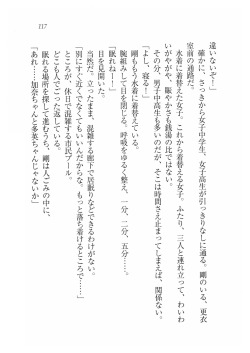 117
違いないぞ！」
確かに、さっきから女子中学生、女子高生が引っきりなしに通る。剛のいる、更衣
室前の通路だ。
水着に着替えた女子、これから着替える女子。ふたり、三人と連れ立って、わいわ
いがやがや、賑やかさも銭湯の比ではない。
その分、男子中高生も多いのだが、そこは時間さえ止まってしまえば、関係ない。
「よし、寝る！」
剛ももう水着に着替えている。
腕組みして目を閉じる。呼吸をゆるく整え、一分、二分、五分……。
「眠れねー！」
目を見開いた。
当然だ。立ったまま、混雑する廊下で居眠りなどできるわけがない。
「別にすぐ近くでなくてもいいんだからな。もっと落ち着けるところで……」
ところが、休日で混雑する市民プール。
どこも人でごった返している。
眠れる場所を探して進むうち、剛は人ごみの中に、
「あれ……加奈ちゃんと多英ちゃんじゃないか」